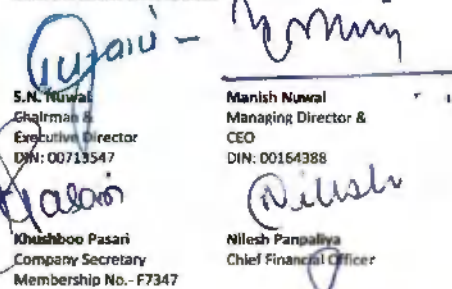 S.N. Nuwal
Chairman &
Executive Director
DIN: 00713547
Manish Nuwal
Managing Director &
CEO
DIN: 00164388
Khushboo Pasari
Company Secretary
Membership No.- F7347
Nilesh Panpaliya
Chief Financial Officer